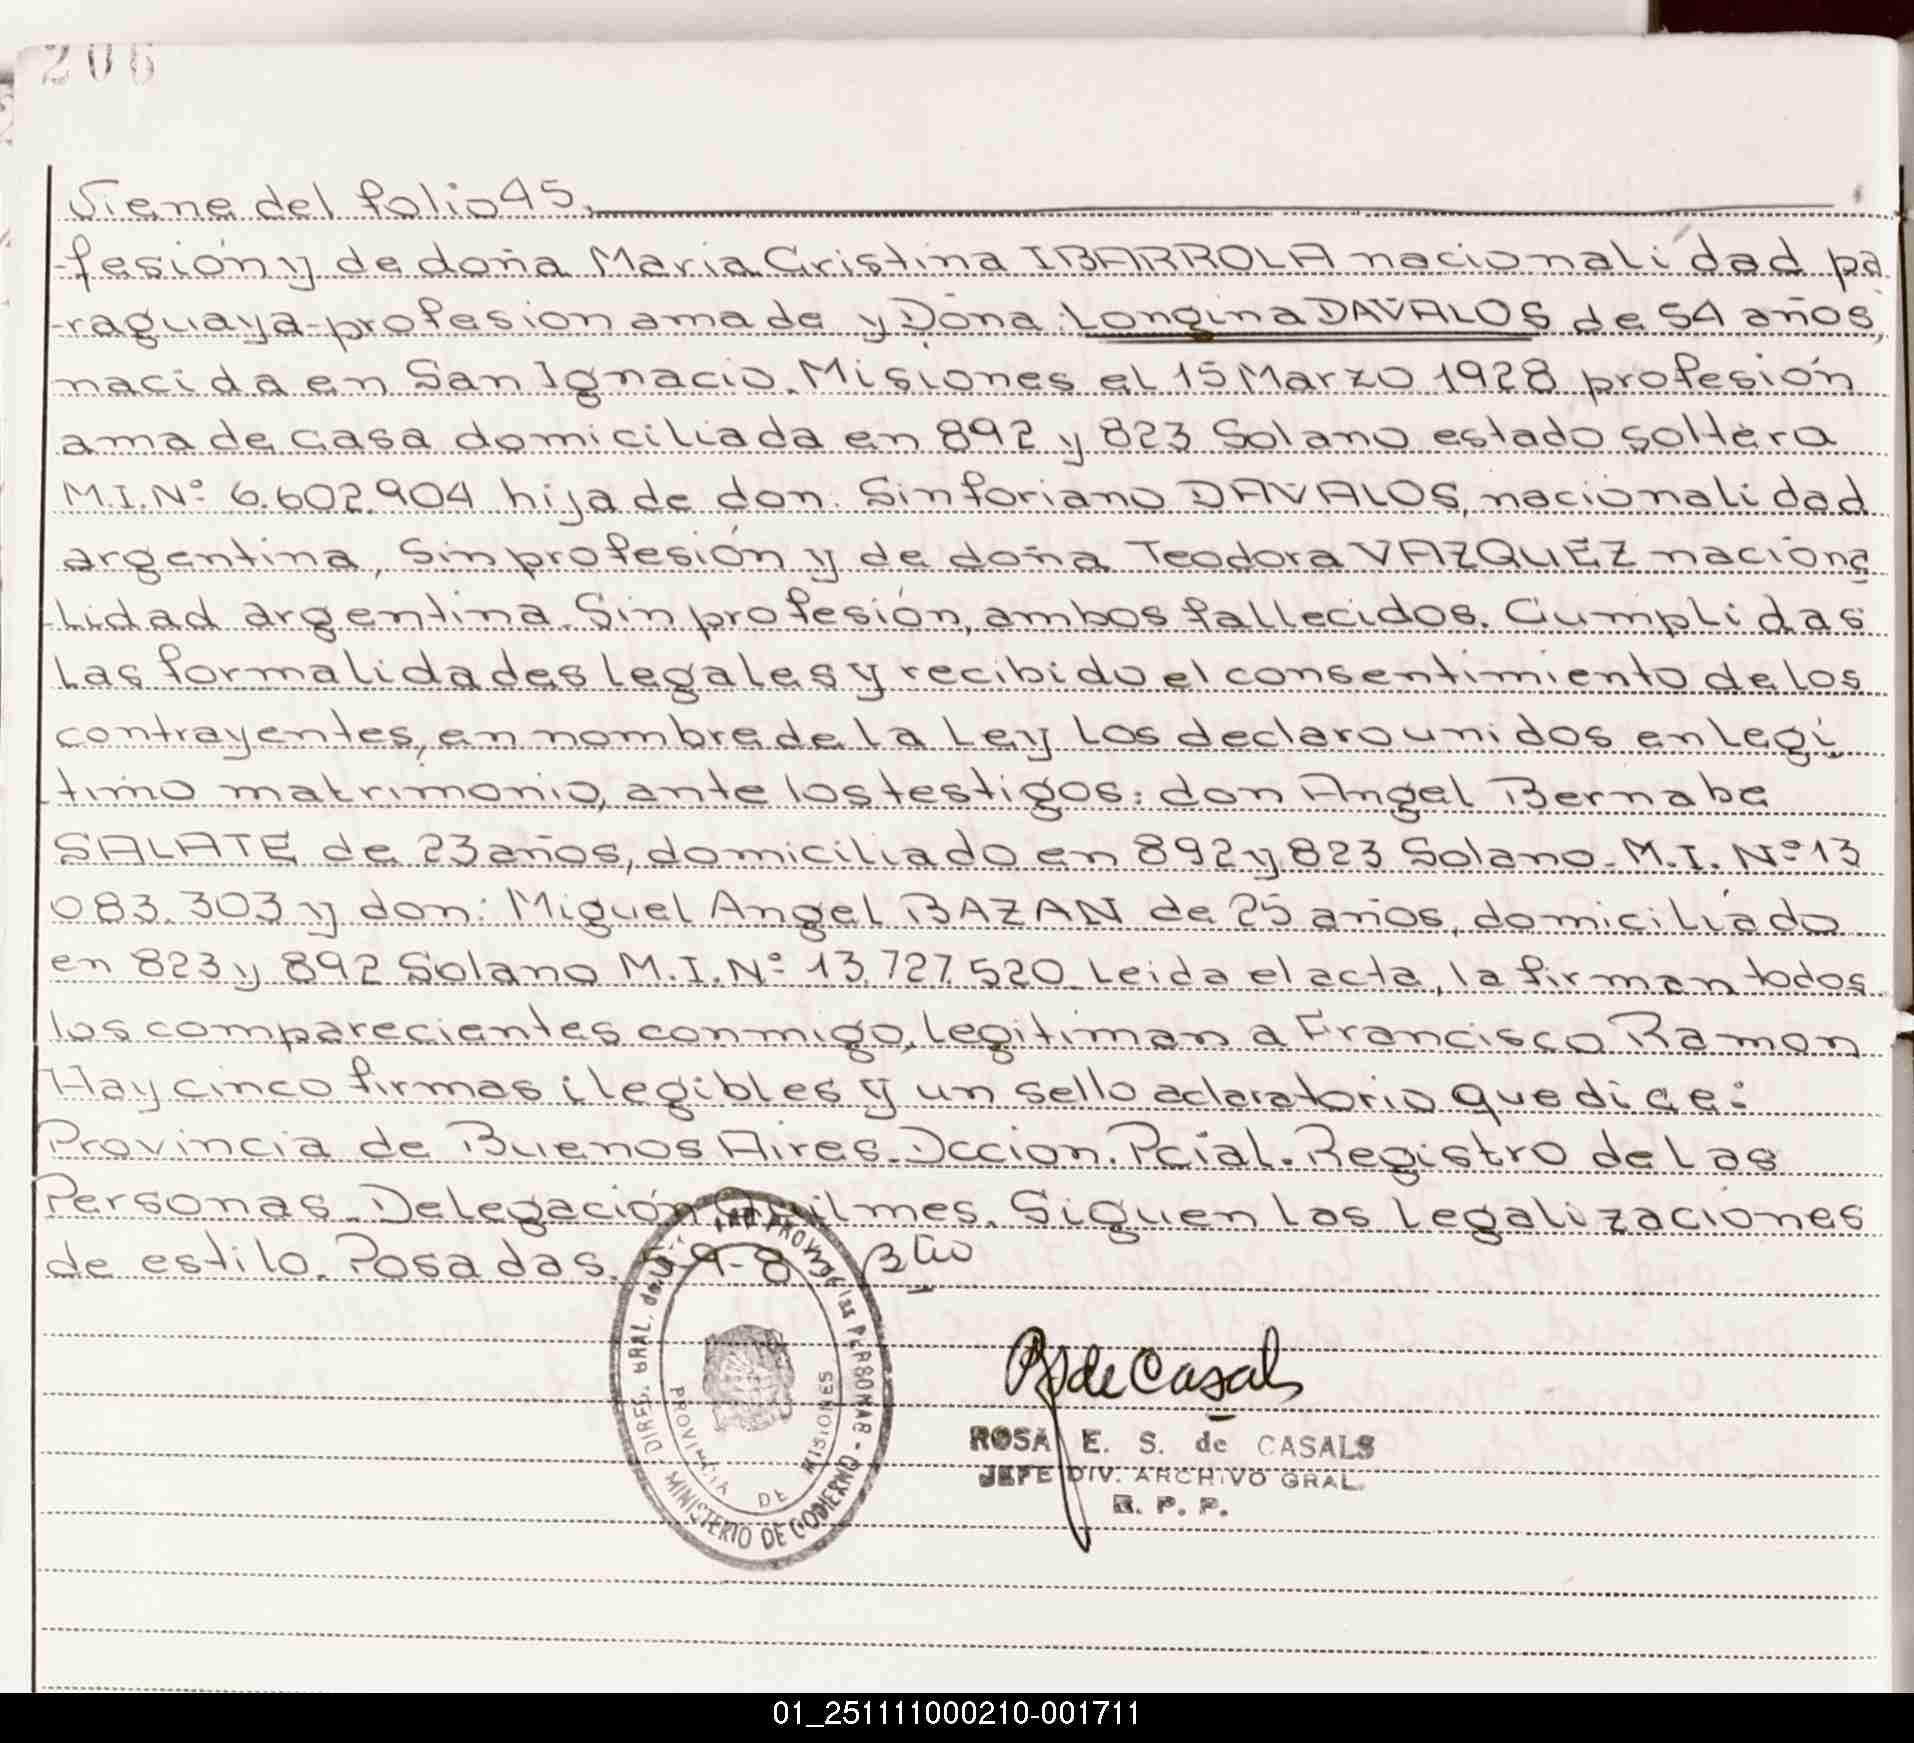 206
Viene del folio 45.
-fesión y de doña Maria Cristina IBARROLA nacionalidad pa
-raguaya-profesion ama de y Doña: Longina DAVALOS de 54 años,
nacida en San Ignacio. Misiones el 15 Marzo 1928 profesión
ama de casa domiciliada en 892 y 823 Solano estado soltera
M.I.Nº 6.602.904 hija de don. Sinforiano DAVALOS, nacionalidad
argentina, Sin profesión y de doña Teodora VAZQUEZ naciona
-lidad argentina. Sin profesión, ambos fallecidos. Cumplidas
las formalidades legales y recibido el consentimiento de los
contrayentes, en nombre de la Ley los declaro unidos en legi
-timo matrimonio, ante los testigos: don Angel Bernabe
SALATE de 23 años, domiciliado en 892 y 823 Solano. M.I. Nº 13
083.303 y don: Miguel Angel BAZAN de 25 años, domiciliado
en 823 y 892 Solano M.I.Nº 13.727.520. Leida el acta, la firman todos
los comparecientes conmigo, legitiman a Francisco Ramon
Hay cinco firmas ilegibles y un sello aclaratorio que dice:
Provincia de Buenos Aires. Dccion. Pcial. Registro de Las
Personas. Delegación Quilmes. Siguen las legalizaciones
de estilo. Posadas. 5-9-83
DIREC. GRAL. PROV. de las PERSONAS - MINISTERIO DE GOBIERNO
PROVINCIA DE MISIONES
RS de Casals
ROSA E. S. de CASALS
JEFE DIV. ARCHIVO GRAL.
R. P. P.
01_251111000210-001711